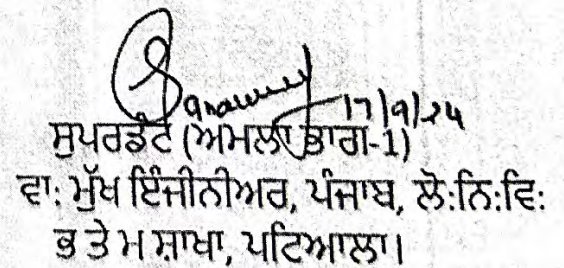 17/9/24
ਸੁਪਰਡੰਟ (ਅਮਲਾ ਭਾਗ-1)
ਵਾ: ਮੁੱਖ ਇੰਜੀਨੀਅਰ, ਪੰਜਾਬ, ਲੋ:ਨਿ:ਵਿ:
ਭ ਤੇ ਮ ਸ਼ਾਖਾ, ਪਟਿਆਲਾ।